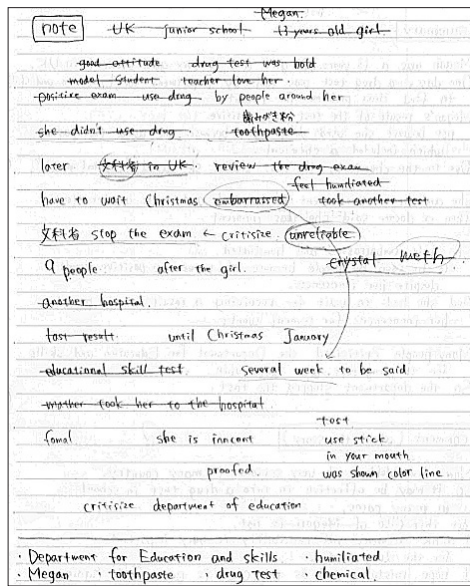 Megan.
note UK junior school 13 years old girl
good attitude drug test was bold
model student teacher love her.
positive exam use drug by people around her
歯みがき粉
she didn't use drug toothpaste
later 文科省 in UK review the drug exam
feel humiliated
have to wait Christmas embarrassed took another test
文科省 stop the exam ← critisize unreliable
crystal meth
9 people after the girl.
another hospital.
tast result until Christmas January
educational skill test several week to be said
mother took her to the hospital
tost
fomal she is inncent use stick
in your mouth
proofed. was shown color line
critisize department of education
· Department for Education and skills · humiliated
· Megan · toothpaste · drug test · chemical.